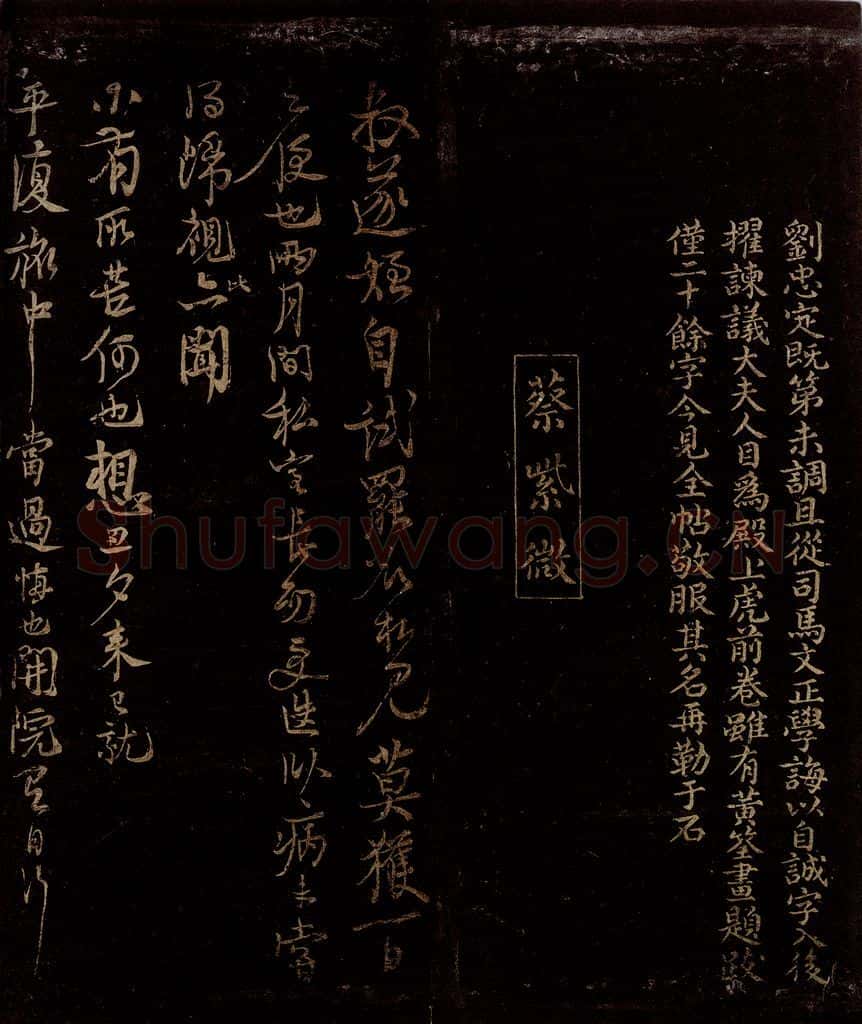 劉忠定既第未調且從司馬文正學誨以自誠字入後
擢諫議大夫人目爲殿上虎前卷雖有黃筌畫題跋
僅二十餘字今見全帖敬服其名再勒于石
蔡紫微
叔遂 自試罷 私 莫獲一日
之便也兩月間私室長幼更迭以病未嘗
得歸視亦聞
此
小有所苦何也想旦夕來已就
平復旅中 當過 也開院 自
Shufawang.CN